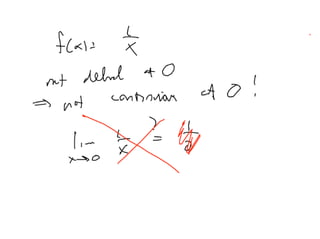 f(x) = 1/x
not defined at 0
⇒ not continuous at 0 !
lim x→0 1/x ? =